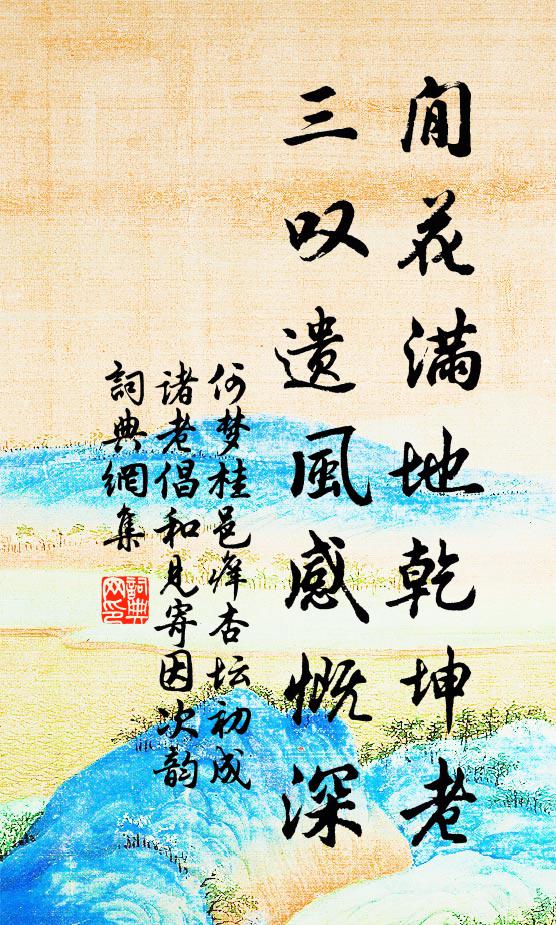 閒花满地乾坤老
三叹遗風感慨深
何梦桂邑痒杏坛初成
诸老倡和见寄因次韵
詞典網集
詞典
网印